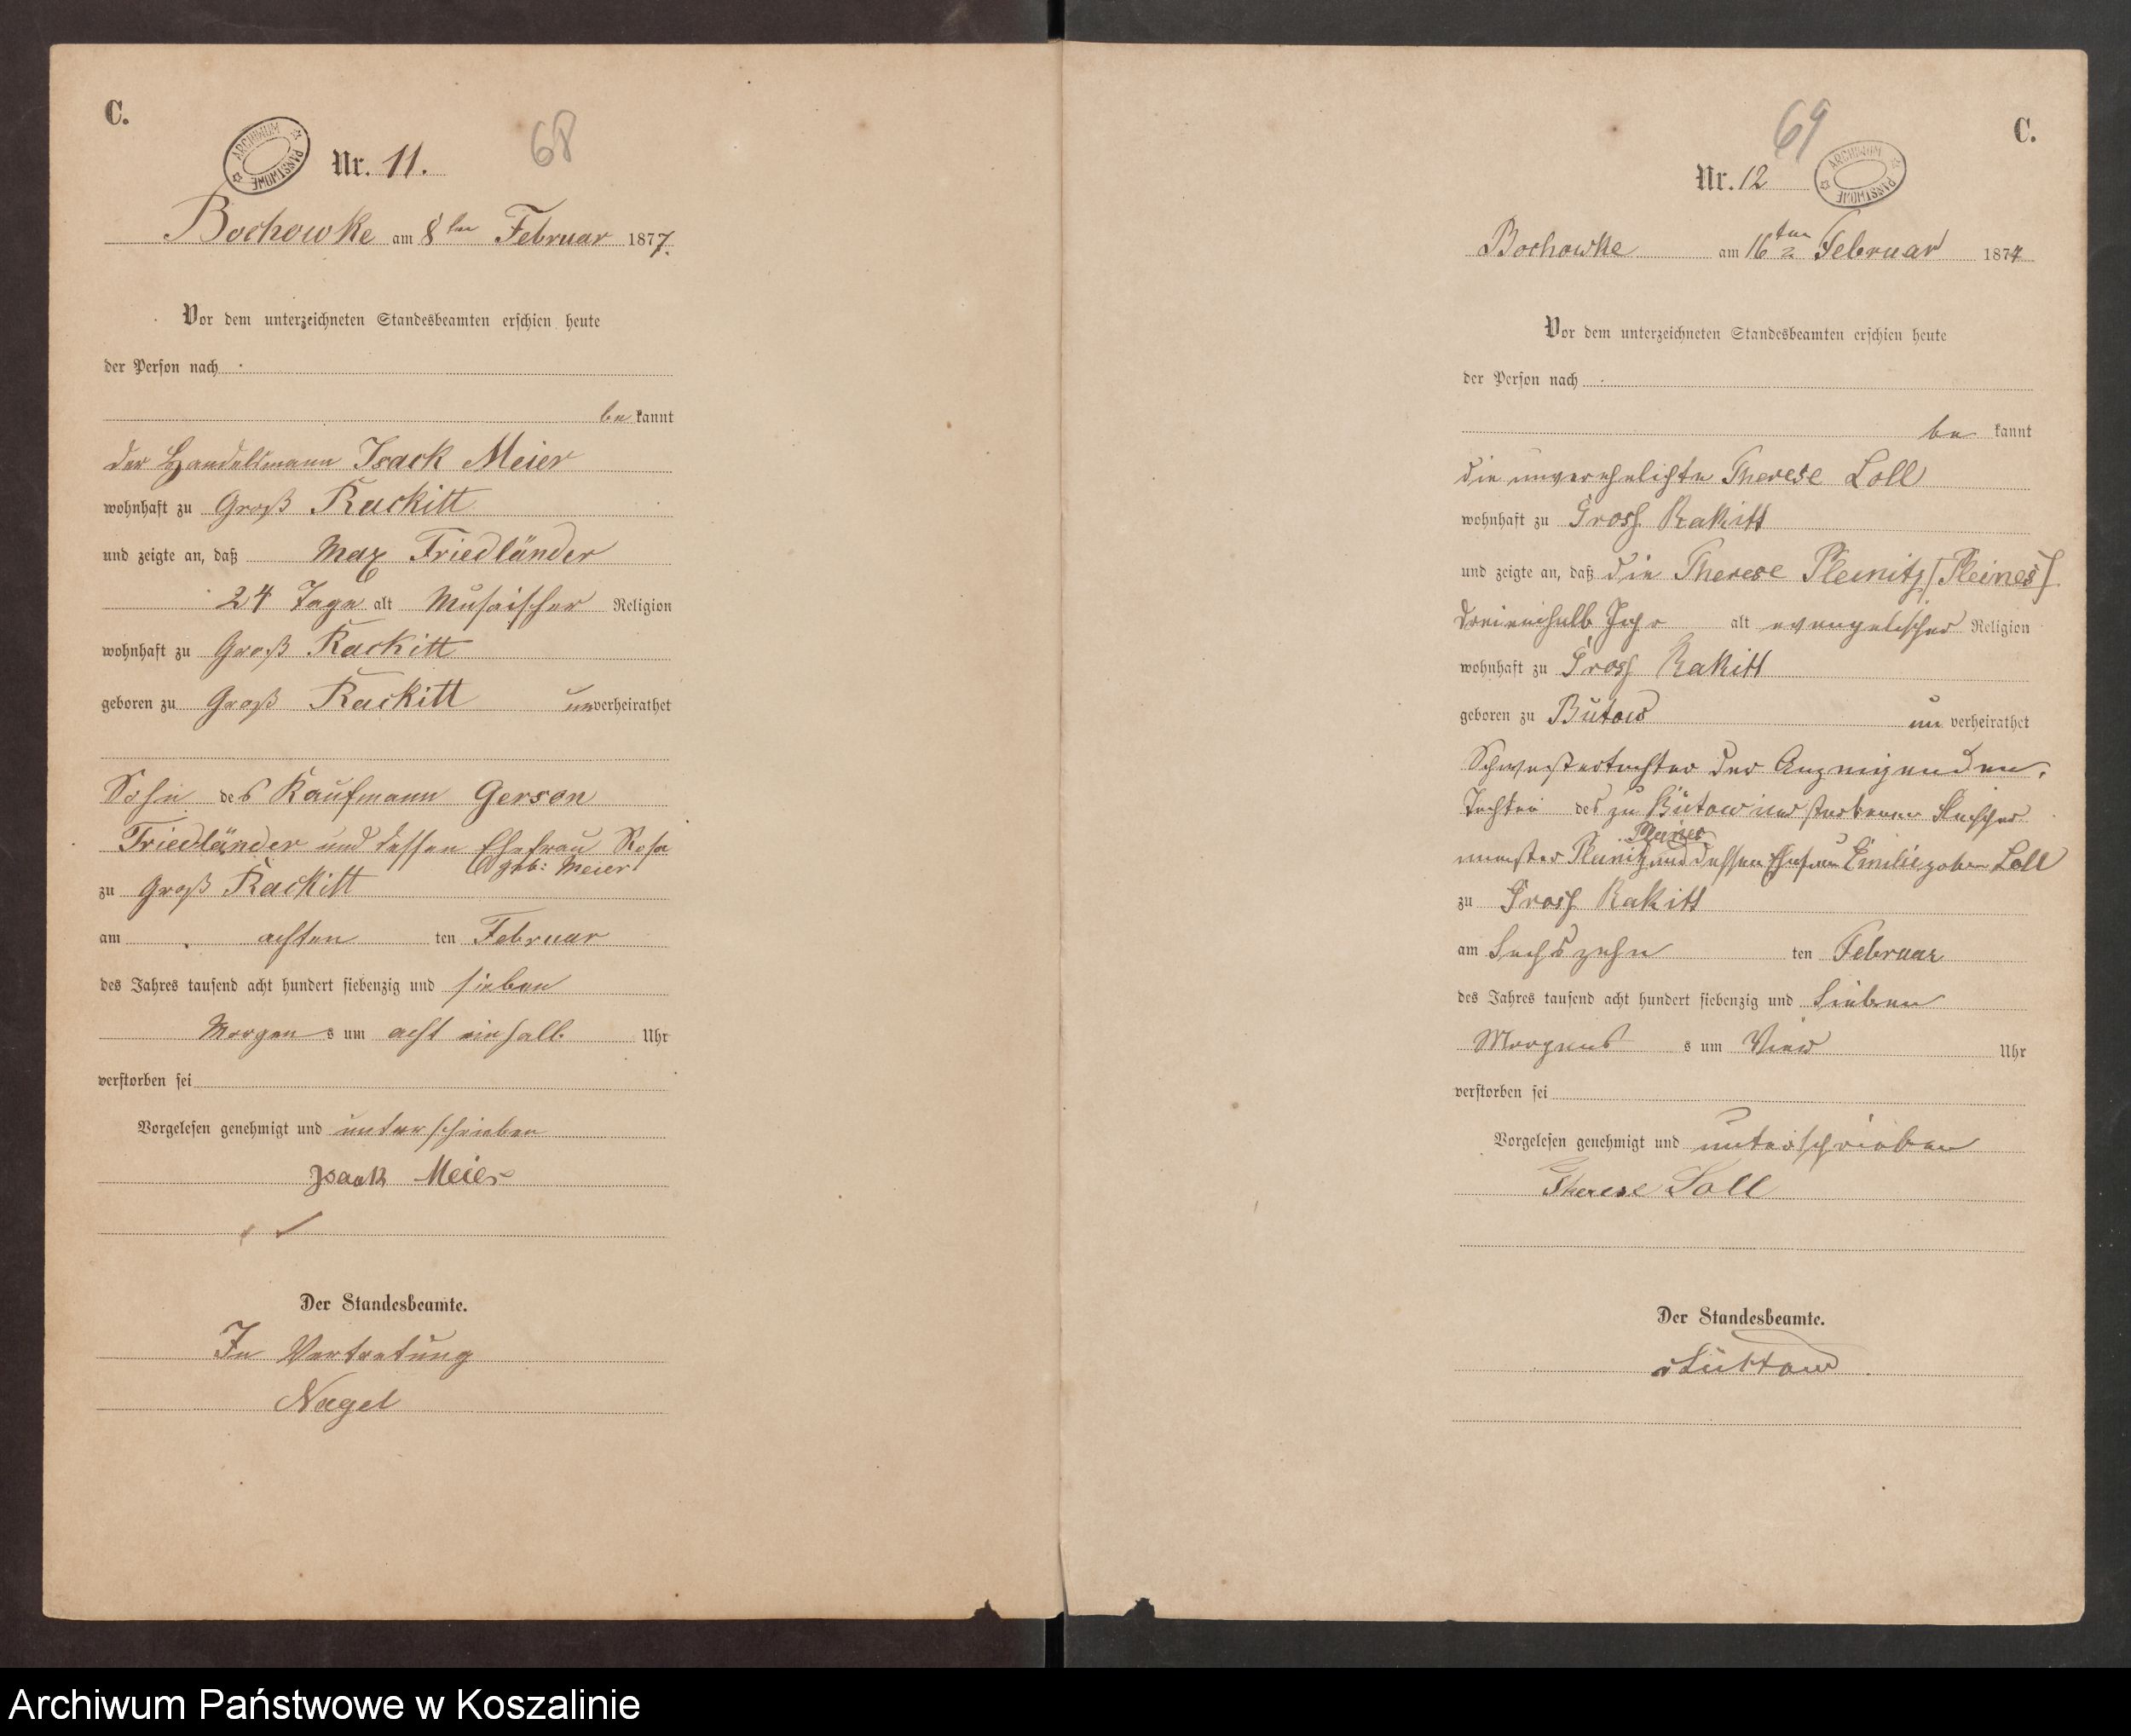 C.
ARCHIWUM PAŃSTWOWE
Nr. 11.
68
Bochowke am 8ten Februar 1877.
Vor dem unterzeichneten Standesbeamten erschien heute
der Person nach
be kannt
der Handelsmann Isack Meier
wohnhaft zu Groß Rackitt
und zeigte an, daß Max Friedländer
24 Tage alt Musaischer Religion
wohnhaft zu Groß Rackitt
geboren zu Groß Rackitt unverheirathet
Sohn des Kaufmann Gerson
Friedländer und dessen Ehefrau Rosa
geb: Meier
zu Groß Rackitt
am achten ten Februar
des Jahres tausend acht hundert siebenzig und sieben
Morgen s um acht einhalb Uhr
verstorben sei
Vorgelesen genehmigt und unterschrieben
Isaak Meier
Der Standesbeamte.
In Vertretung
Nagel
69
C.
Nr. 12
ARCHIWUM PAŃSTWOWE
Bochowke am 16ten Februar 1877
Vor dem unterzeichneten Standesbeamten erschien heute
der Person nach
be kannt
die unverehelichte Therese Loll
wohnhaft zu Gross Rakitt
und zeigte an, daß die Therese Pleinitz [Pleines]
dreieinhalb Jahr alt evangelischer Religion
wohnhaft zu Gross Rakitt
geboren zu Bütow un verheirathet
Schwestertochter der Anzeigenden,
Tochter des zu Bütow verstorbenen
Pleines
Pleinitz und dessen Ehefrau Emilie geboren Loll
zu Gross Rakitt
am Sechszehn ten Februar
des Jahres tausend acht hundert siebenzig und Sieben
Morgens s um Vier Uhr
verstorben sei
Vorgelesen genehmigt und unterschrieben
Therese Loll
Der Standesbeamte.
Archiwum Państwowe w Koszalinie